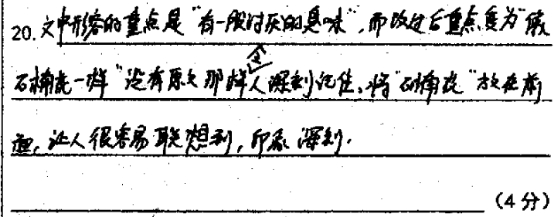 20. 文中形容的重点是“有一股讨厌的臭味”,而改过后重点变为“像
石楠花一样”没有原文那样令人深刻记住,将“石楠花”放在前
面,让人很容易联想到,印象深刻.
(4分)